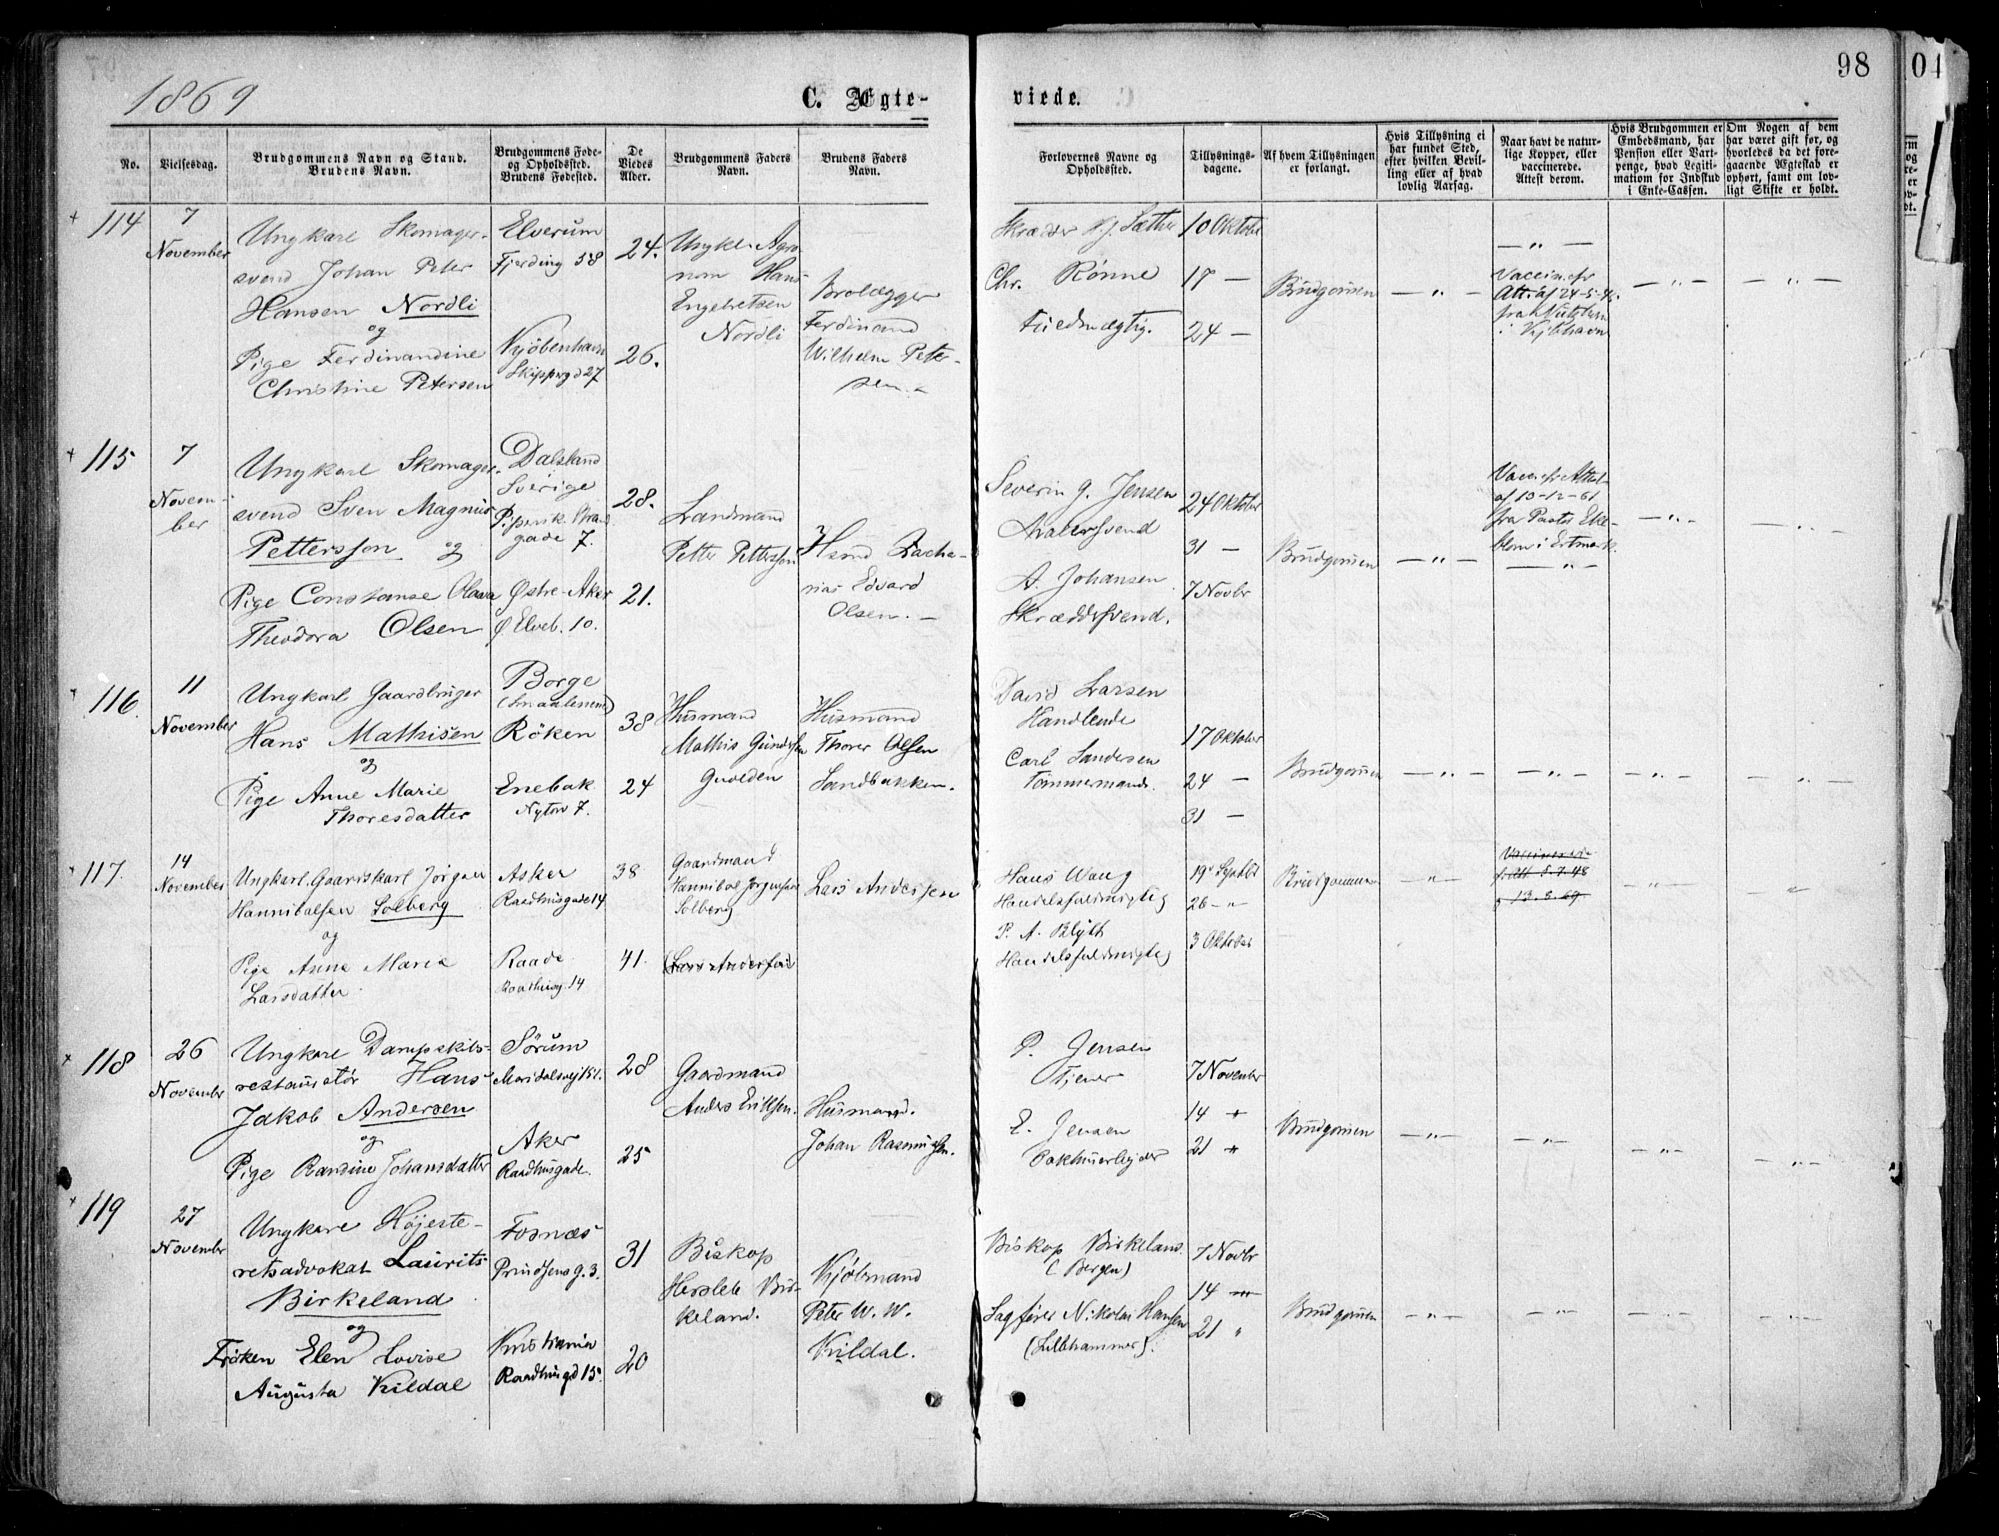 1869
C. Ægte-
viede.
98
No.
Vielsesdag.
Brudgommens Navn og Stand.
Brudens Navn.
Brudgommens Føde-
og Opholdssted.
Brudens Fødested.
De
Viedes
Alder.
Brudgommens Faders
Navn.
Brudens Faders
Navn.
Forlovernes Navne og
Opholdssted.
Tillysnings-
dagene.
Af hvem Tillysningen
er forlangt.
Hvis Tillysning ei
har fundet Sted,
efter hvilken Bevil-
ling eller af hvad
lovlig Aarsag.
Naar havt de natur-
lige Kopper, eller
vaccinerede.
Attest derom.
Hvis Brudgommen er
Embedsmand, har
Pension eller Vart-
penge, hvad Legiti-
mation for Indskud
i Enke-Cassen.
Om Nogen af dem
har været gift før, og
hvorledes da det fore-
gaaende Ægteskab er
ophørt, samt om lov-
ligt Skifte er holdt.
114
7
November
Ungkarl Skomager-
svend Johan Peter
Hansen Nordli
og
Pige Ferdinandine
Christine Petersen
Elverum
Fjerding 58
Kjøbenhavn
Skipperg 27
24.
26.
Ungkl. Agro
nom Hans
Engebretsen
Nordli
Brolægger
Ferdinand
Wilhelm Peter-
sen. -
Skrædder Sæther
Chr. Rønne
Fuldmægtig.
10 Oktober
17 -
24 -
Brudgommen
- " -
- " -
Att. af 24-5-
i Kjøbhavn
- " -
- " -
115
7
Novem-
ber
Ungkarl Skomager-
svend Sven Magnus
Pettersson og
Pige Constanse Olava
Theodora Olsen
Dalsland
Sverige
gade 7.
Østre-Aker
Ø Elveb. 10.
28.
21.
Landmand
Petter Pettersson
Zacha-
rias Edvard
Olsen. -
Severin G. Jensen
Malersvend
A. Johansen
Skræddersvend.
24 Oktober
31 -
7 Novbr
Brudgommen
- " -
af 10-12-61
fra Pastor Eke-
blom i Ertmark.
- " -
- " -
- " -
116
11
November
Ungkarl Gaardbruger
Hans Mathisen
og
Pige Anne Marie
Thoresdatter
Borge
(Smaalenene)
Röken
Enebak
Nytorv 7.
38
24
Husmand
Mathis Gundersen
Husmand
Thorer Olsen
Sandbakken.
David Larsen
Handlende
Carl Sandersen
Tømmermand.
17 Oktober
24 -
31 -
Brudgommen
- " -
- " -
- " -
- " -
117.
14
November
Ungkarl. Gaardskarl Jörgen
Hannibalsen Solberg
og
Pige Anne Marie
Larsdatter
Asker
Raadhusgade 14
Raade
Raadhusg. 14
38
41.
Gaardmand
Hannibal Jørgensen
Solberg
(Lars Andersen)
Lars Andersen
Hans Wang
Handelsfuldmægtig
P. A. Blyth
Handelsfuldmægtig
19 Septbr
26 - "
3 Oktober
Brudgommen
- " -
Vaccinerede
f. Att 5.7.48
13.8.69
- " -
- " -
118
26
November
Ungkarl Dampskibs-
restauratør Hans
Jakob Andersen
og
Pige Randine Johansdatter
Sörum
Maridalsvej 151.
Aker
Raadhusgade.
28
25
Gaardmand
Anders Eriksen.
Husmand.
Johan Rasmussen.
P. Jensen
Tjener
E. Jensen
7 November
14 "
21 "
Brudgommen
- " -
- " -
- " -
- " -
119
27
November
Ungkarl Højeste-
retsadvokat Laurits
Birkeland
og
Frøken Elen Lovise
Augusta Kildal
Fosnæs
Prindsens g. 3.
Kristiania
Raadhusgd 15
31
20
Biskop
Hersleb Bir-
keland.
Kjøbmand
Peter W. W.
Kildal.
Biskop Birkeland
(Bergen)
Sagfører Nikolai Hansen
(Lillehammer).
7 Novbr
14 "
21 "
Brudgommen
- " -
- " -
- " -
- " -